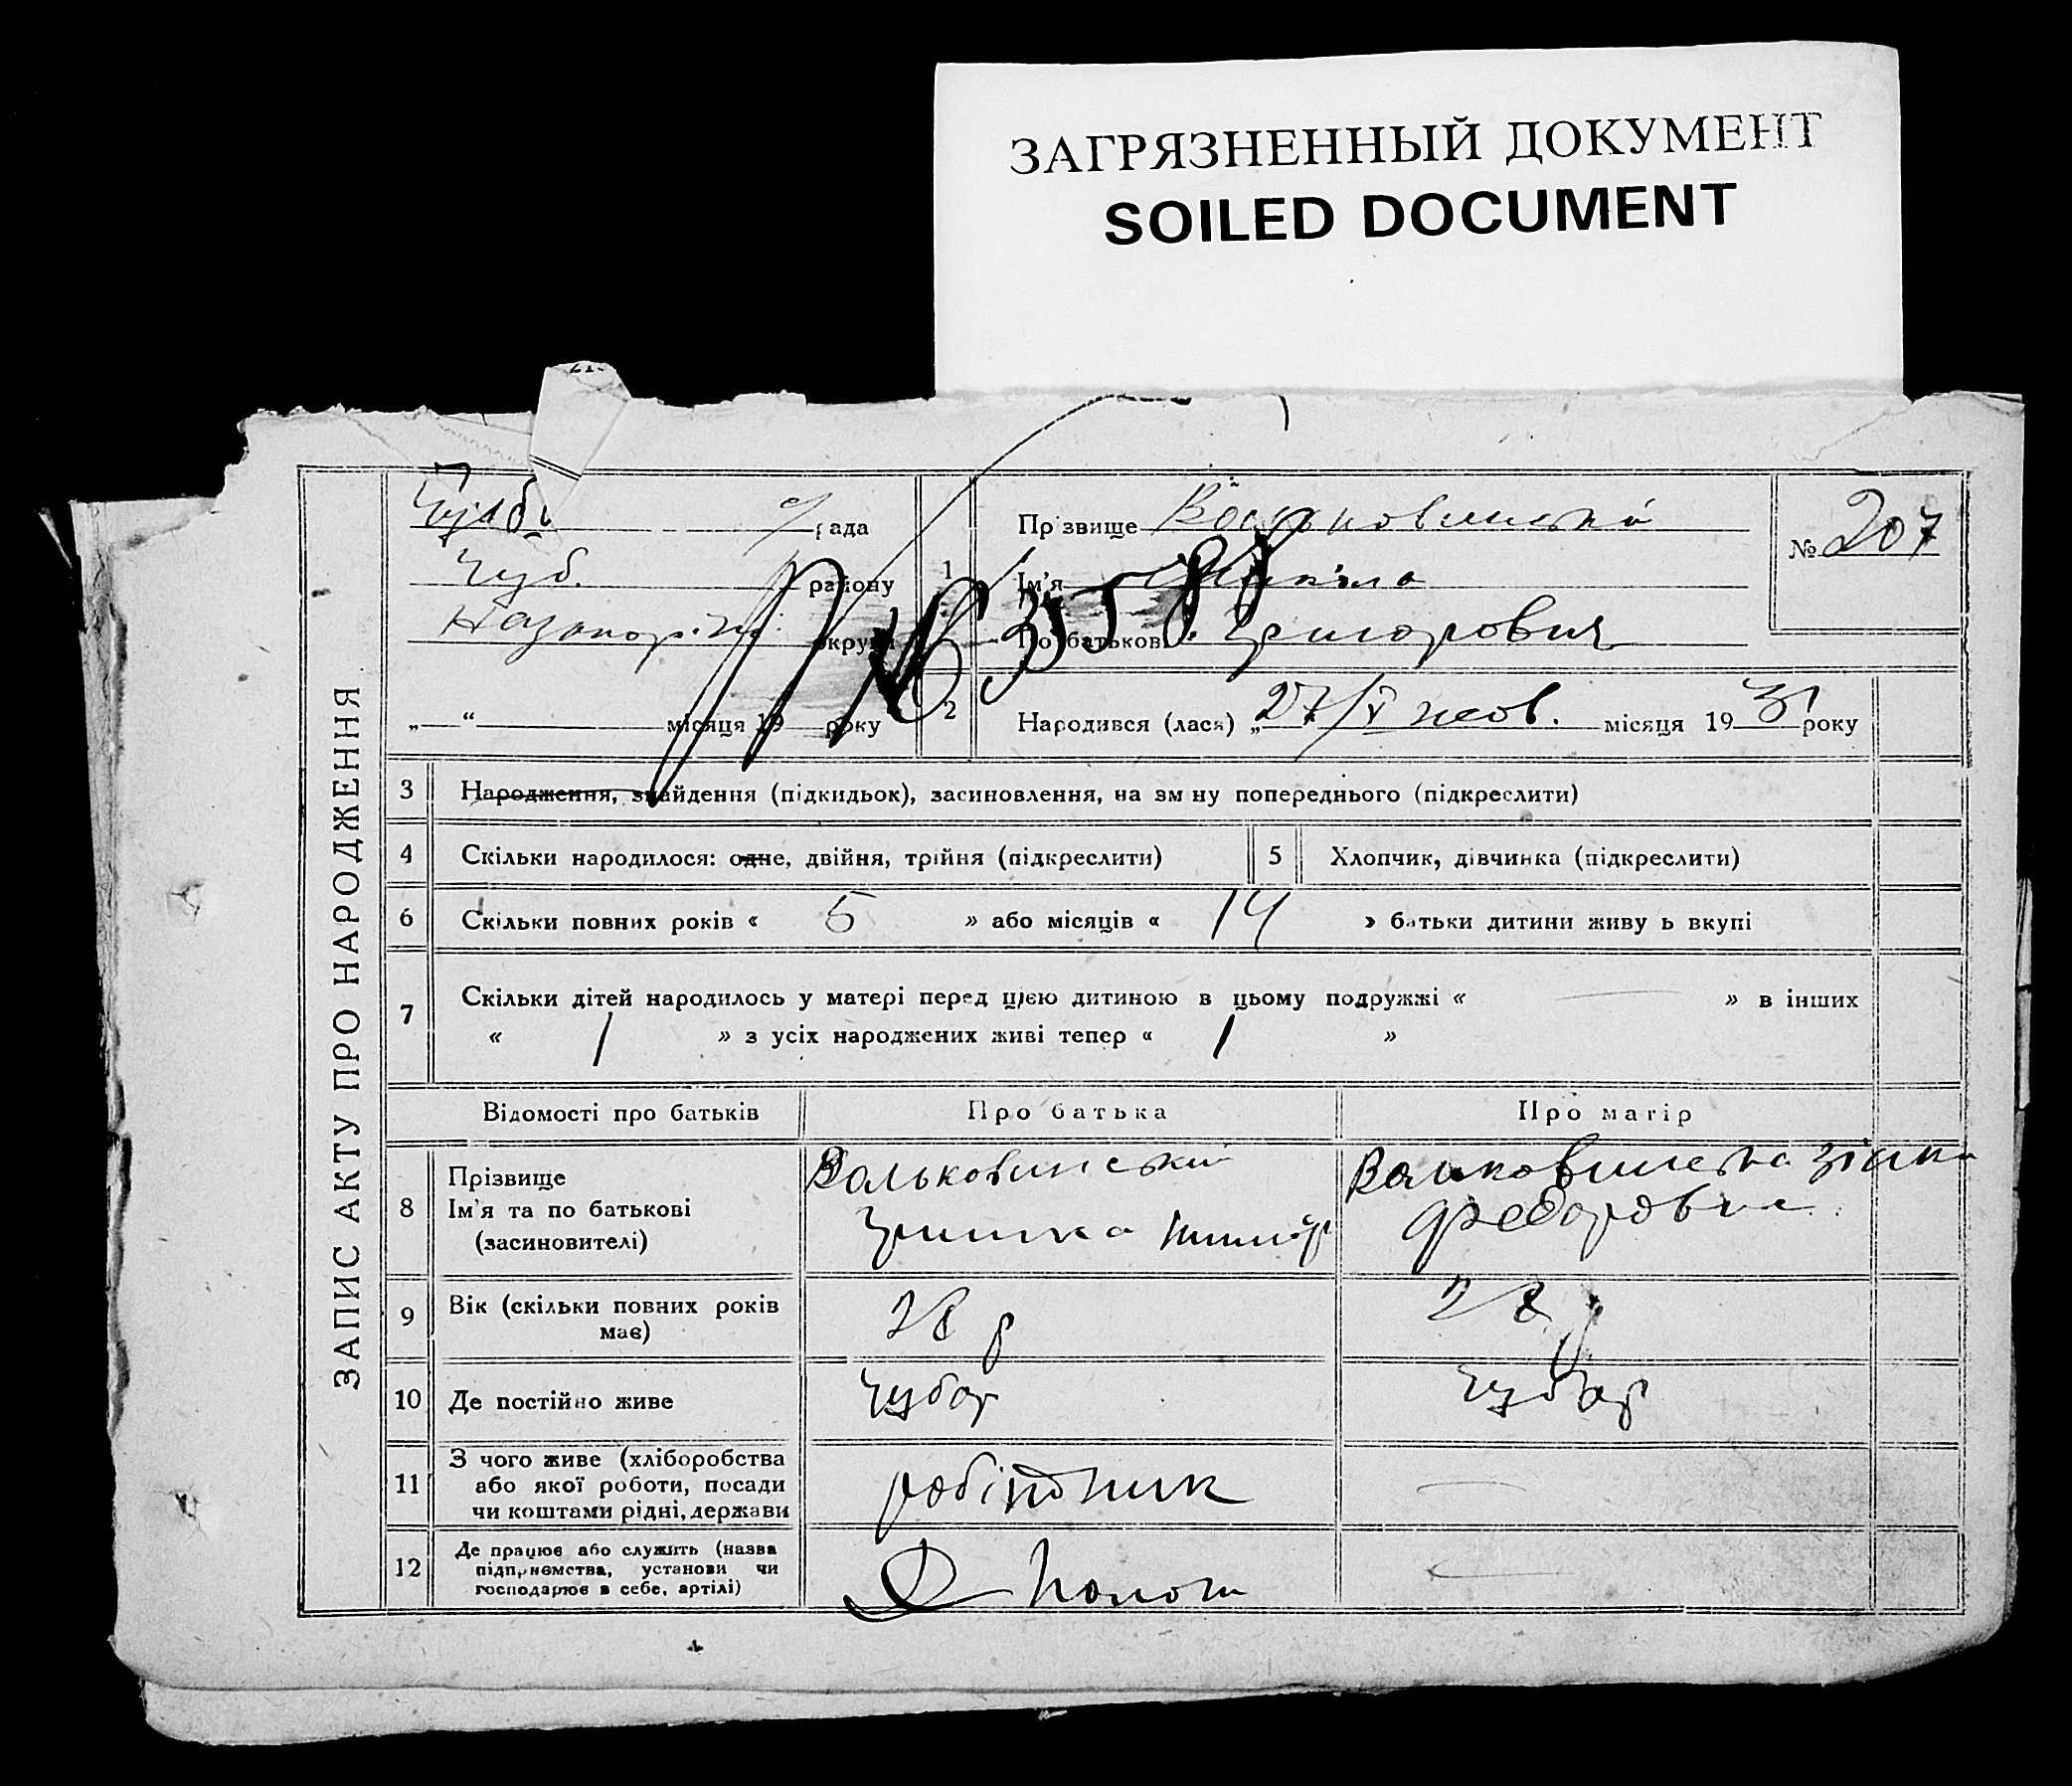 ЗАГРЯЗНЕННЫЙ ДОКУМЕНТ
SOILED DOCUMENT
ЗАПИС АКТУ ПРО НАРОДЖЕННЯ
рада
Чуб. району
округи
„ “ місяця 19 року
1
Прізвище
Ім'я Микола
По батькові Григорович
№ 207
2
Народився (лася) „27/V місяця 1931 року
3 Народження, знайдення (підкидьок), засиновлення, на зміну попереднього (підкреслити)
4 Скільки народилося: одне, двійня, трійня (підкреслити)
5 Хлопчик, дівчинка (підкреслити)
6 Скільки повних років « 5 » або місяців « 14 » батьки дитини живуть вкупі
7 Скільки дітей народилось у матері перед цією дитиною в цьому подружжі « — » в інших
« 1 » з усіх народжених живі тепер « 1 »
Відомості про батьків Про батька Про матір
8 Прізвище
Ім'я та по батькові
(засиновителі)
Вальковинський
Гришка
Валковинська Зінка
Федоровна
9 Вік (скільки повних років
має)
28 р
28 р
10 Де постійно живе
Чубар
Чубар
11 З чого живе (хліборобства
або якої роботи, посади
чи коштами рідні, держави
робітник
—
12 Де працює або служить (назва
підприємства, установи чи
господарює в себе, артілі)
Полог
—